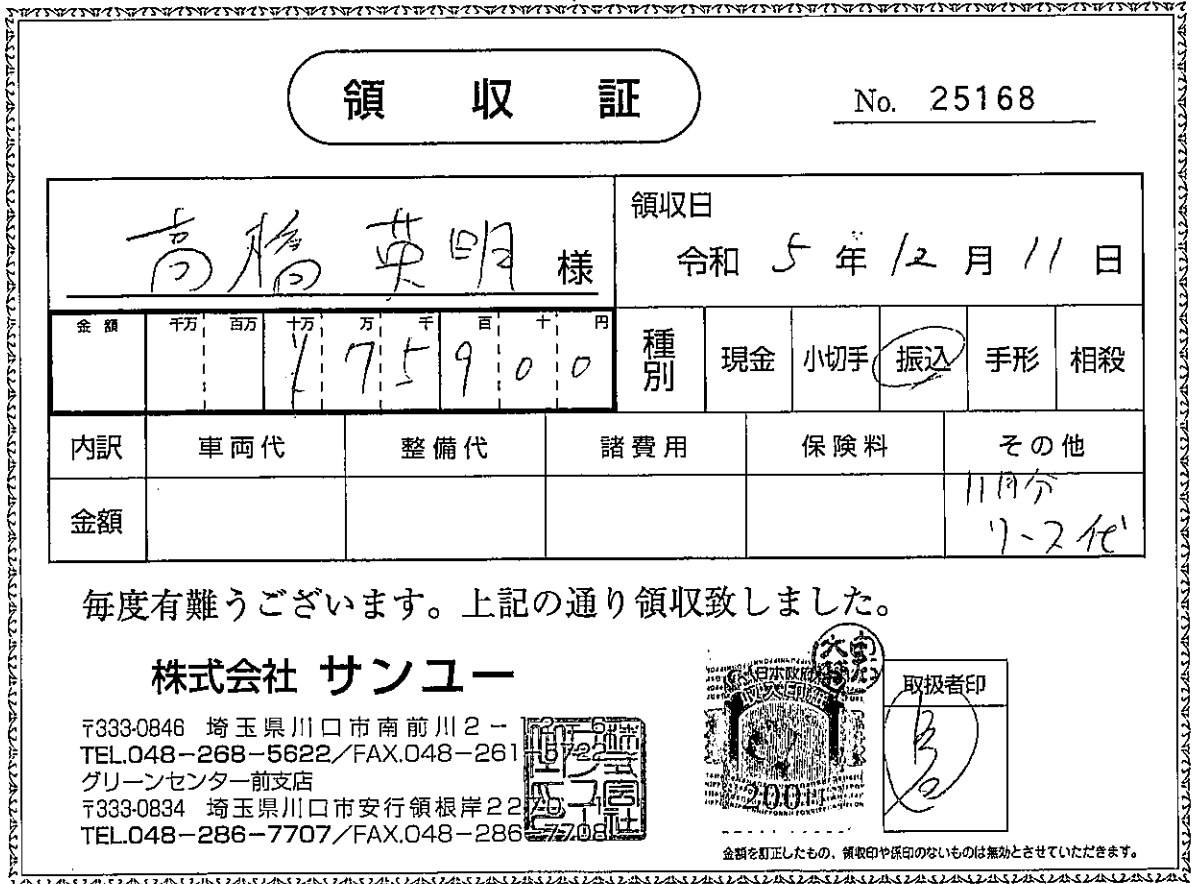 領収証
No. 25168
高橋英明 様
領収日
令和 5年 12月 11日
金額 千万 百万 十万 万 千 百 十 円
175900
種別 現金 小切手 振込 手形 相殺
内訳 車両代 整備代 諸費用 保険料 その他
金額 11月分
リース代
毎度有難うございます。上記の通り領収致しました。
株式会社 サンユー
〒333-0846 埼玉県川口市南前川2-12-6
TEL.048-268-5622/FAX.048-261-5722
グリーンセンター前支店
〒333-0834 埼玉県川口市安行領根岸2270-1
TEL.048-286-7707/FAX.048-286-7708
日本政府
収入印紙
200円
取扱者印
金額を訂正したもの、領収印や係印のないものは無効とさせていただきます。